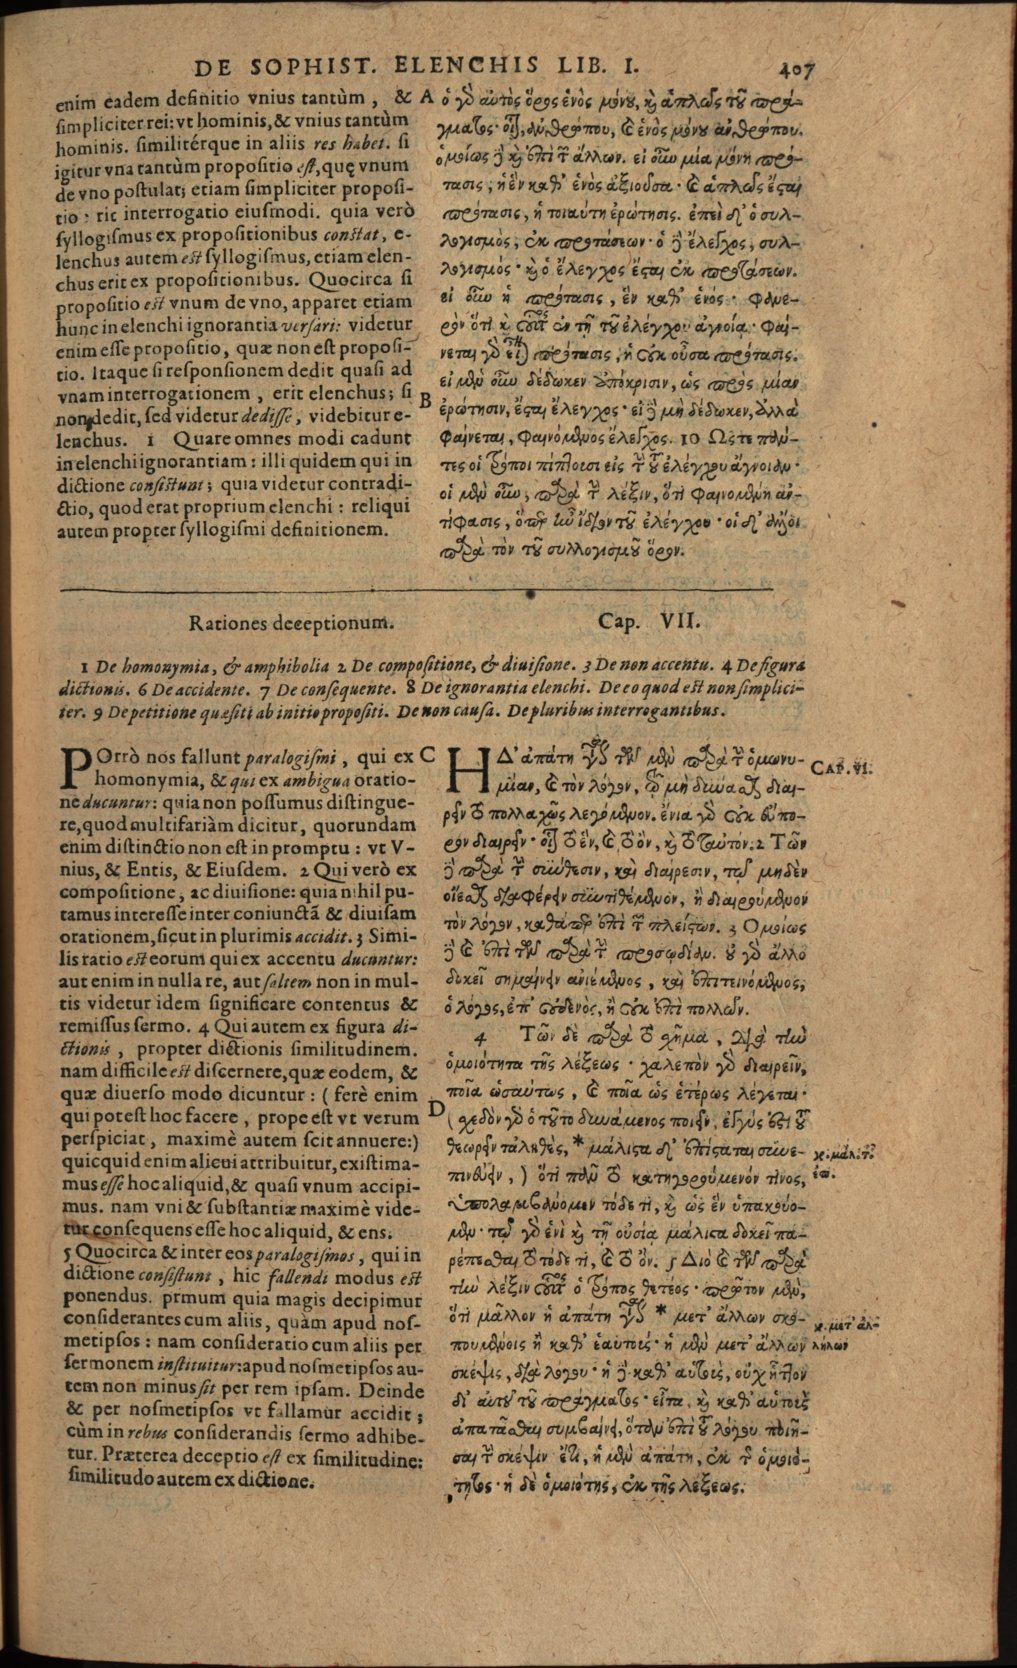 DE SOPHIST. ELENCHIS LIB. I. 407
enim eadem definitio vnius tantùm, &
simpliciter rei: vt hominis, & vnius tantùm
hominis. similitérque in aliis res habet. si
igitur vna tantùm propositio est, quę vnum
de vno postulat; etiam simpliciter proposi-
tio: rit interrogatio eiusmodi. quia verò
syllogismus ex propositionibus constat, e-
lenchus autem est syllogismus, etiam elen-
chus erit ex propositionibus. Quocirca si
propositio est vnum de vno, apparet etiam
hunc in elenchi ignorantia versari: videtur
enim esse propositio, quæ non est proposi-
tio. Itaque si responsionem dedit quasi ad
vnam interrogationem, erit elenchus; si
non dedit, sed videtur dedisse, videbitur e-
lenchus. 1 Quare omnes modi cadunt
in elenchi ignorantiam: illi quidem qui in
dictione consistunt; quia videtur contradi-
ctio, quod erat proprium elenchi: reliqui
autem propter syllogismi definitionem.
A
B
ὁ γὸ αὐτὸς ὅρος ἑνὸς μόνου, καὶ ἁπλῶς τοῦ πρά-
γματος· οἷον, ἀνθρώπου, καὶ ἑνὸς μόνου ἀνθρώπου.
ὁμοίως δὲ καὶ ἐπὶ τῶν ἄλλων. εἰ οὖν μία μόνη πρό-
τασις, ἡ ἓν καθ' ἑνὸς ἀξιοῦσα· καὶ ἁπλῶς ἔσται
πρότασις, ἡ τοιαύτη ἐρώτησις. ἐπεὶ δ' ὁ συλ-
λογισμὸς, ἐκ προτάσεων· ὁ δὲ ἔλεγχος, συλ-
λογισμός· καὶ ὁ ἔλεγχος ἔσται ἐκ προτάσεων.
εἰ οὖν ἡ πρότασις, ἓν καθ' ἑνός· φανε-
ρὸν ὅτι καὶ οὗτος ἐν τῇ τοῦ ἐλέγχου ἀγνοίᾳ· φαί-
νεται γὰρ εἶναι πρότασις, ἡ οὐκ οὖσα πρότασις.
εἰ μὲν οὖν δέδωκεν ἀπόκρισιν, ὡς πρὸς μίαν
ἐρώτησιν, ἔσται ἔλεγχος· εἰ δὲ μὴ δέδωκεν, ἀλλὰ
φαίνεται, φαινόμενος ἔλεγχος. 10 Ωστε πάν-
τες οἱ τρόποι πίπτουσι εἰς τὴν τοῦ ἐλέγχου ἄγνοιαν·
οἱ μὲν οὖν, παρὰ τὴν λέξιν, ὅτι φαινομένη ἀν-
τίφασις, ὅπερ ἦν ἴδιον τοῦ ἐλέγχου· οἱ δ' ἄλλοι
παρὰ τὸν τοῦ συλλογισμοῦ ὅρον.
Rationes deceptionum. Cap. VII.
1 De homonymia, & amphibolia 2 De compositione, & diuisione. 3 De non accentu. 4 De figura
dictionis. 6 De accidente. 7 De consequente. 8 De ignorantia elenchi. De eo quod est non simplici-
ter. 9 De petitione quæsiti ab initio propositi. De non causa. De pluribus interrogantibus.
POrrò nos fallunt paralogismi, qui ex
homonymia, & qui ex ambigua oratio-
ne ducuntur: quia non possumus distingue-
re, quod multifariàm dicitur, quorundam
enim distinctio non est in promptu: vt V-
nius, & Entis, & Eiusdem. 2 Qui verò ex
compositione, ac diuisione: quia nihil pu-
tamus interesse inter coniunctã & diuisam
orationem, sicut in plurimis accidit. 3 Simi-
lis ratio est eorum qui ex accentu ducuntur:
aut enim in nulla re, aut saltem non in mul-
tis videtur idem significare contentus &
remissus sermo. 4 Qui autem ex figura di-
ctionis, propter dictionis similitudinem.
nam difficile est discernere, quæ eodem, &
quæ diuerso modo dicuntur: (ferè enim
qui potest hoc facere, prope est vt verum
perspiciat, maximè autem scit annuere:)
quicquid enim alicui attribuitur, existima-
mus esse hoc aliquid, & quasi vnum accipi-
mus. nam vni & substantiæ maximè vide-
tur consequens esse hoc aliquid, & ens.
5 Quocirca & inter eos paralogismos, qui in
dictione consistunt, hic fallendi modus est
ponendus. prmum quia magis decipimur
considerantes cum aliis, quàm apud nos-
metipsos: nam consideratio cum aliis per
sermonem instituitur: apud nosmetipsos au-
tem non minus sit per rem ipsam. Deinde
& per nosmetipsos vt fallamur accidit;
cùm in rebus considerandis sermo adhibe-
tur. Præterea deceptio est ex similitudine:
similitudo autem ex dictione.
C
D
Η Δ' ἀπάτη γίνεται τῶν μὲν παρὰ τὴν ὁμωνυ-
μίαν, καὶ τὸν λόγον, τῷ μὴ δύνασθαι διαι-
ρεῖν τὸ πολλαχῶς λεγόμενον. ἔνια γὰρ οὐκ εὔπο-
ρον διαιρεῖν· οἷον τὸ ἓν, καὶ τὸ ὂν, καὶ τὸ ταὐτόν. 2 Τῶν
δὲ παρὰ τὴν σύνθεσιν, καὶ διαίρεσιν, τῷ μηδὲν
οἴεσθαι διαφέρειν συντιθέμενον, ἢ διαιρούμενον
τὸν λόγον, καθάπερ ἐπὶ τῶν πλείστων. 3 Ομοίως
δὲ καὶ ἐπὶ τῶν παρὰ τὴν προσῳδίαν. οὐ γὰρ ἄλλο
δοκεῖ σημαίνειν ἀνιέμενος, καὶ ἐπιτεινόμενος,
ὁ λόγος, ἐπ' οὐδενὸς, ἢ οὐκ ἐπὶ πολλῶν.
4 Τῶν δὲ παρὰ τὸ σχῆμα, διὰ τὴν
ὁμοιότητα τῆς λέξεως· χαλεπὸν γὰρ διαιρεῖν,
ποῖα ὡσαύτως, καὶ ποῖα ὡς ἑτέρως λέγεται·
(σχεδὸν γὰρ ὁ τοῦτο δυνάμενος ποιεῖν, ἐγγύς ἐστι τοῦ
θεωρεῖν τἀληθές, * μάλιστα δ' ἐπίσταται συνε-
πινεύειν,) ὅτι πᾶν τὸ κατηγορούμενόν τινος,
ὑπολαμβάνομεν τόδε τι, καὶ ὡς ἓν ὑπακούο-
μεν· τῷ γὰρ ἑνὶ καὶ τῇ οὐσίᾳ μάλιστα δοκεῖ πα-
ρέπεσθαι τὸ τόδε τι, καὶ τὸ ὄν. 5 Διὸ καὶ τῶν παρὰ
τὴν λέξιν οὗτος ὁ τρόπος θετέος· πρῶτον μὲν,
ὅτι μᾶλλον ἡ ἀπάτη γίνεται * μετ' ἄλλων σκο-
πουμένοις ἢ καθ' ἑαυτούς· ἡ μὲν μετ' ἄλλων
σκέψις, διὰ λόγου· ἡ δὲ καθ' αὑτοὺς, οὐχ ἧττον
δι' αὐτοῦ τοῦ πράγματος· εἶτα, καὶ καθ' αὑτοὺς
ἀπατᾶσθαι συμβαίνει, ὅταν ἐπὶ τοῦ λόγου ποιῆ-
σαι τὴν σκέψιν· ἔτι, ἡ μὲν ἀπάτη, ἐκ τῆς ὁμοιό-
τητος· ἡ δὲ ὁμοιότης, ἐκ τῆς λέξεως.
CAP. VI.
χ. μετ' ἀλ-
λήλων